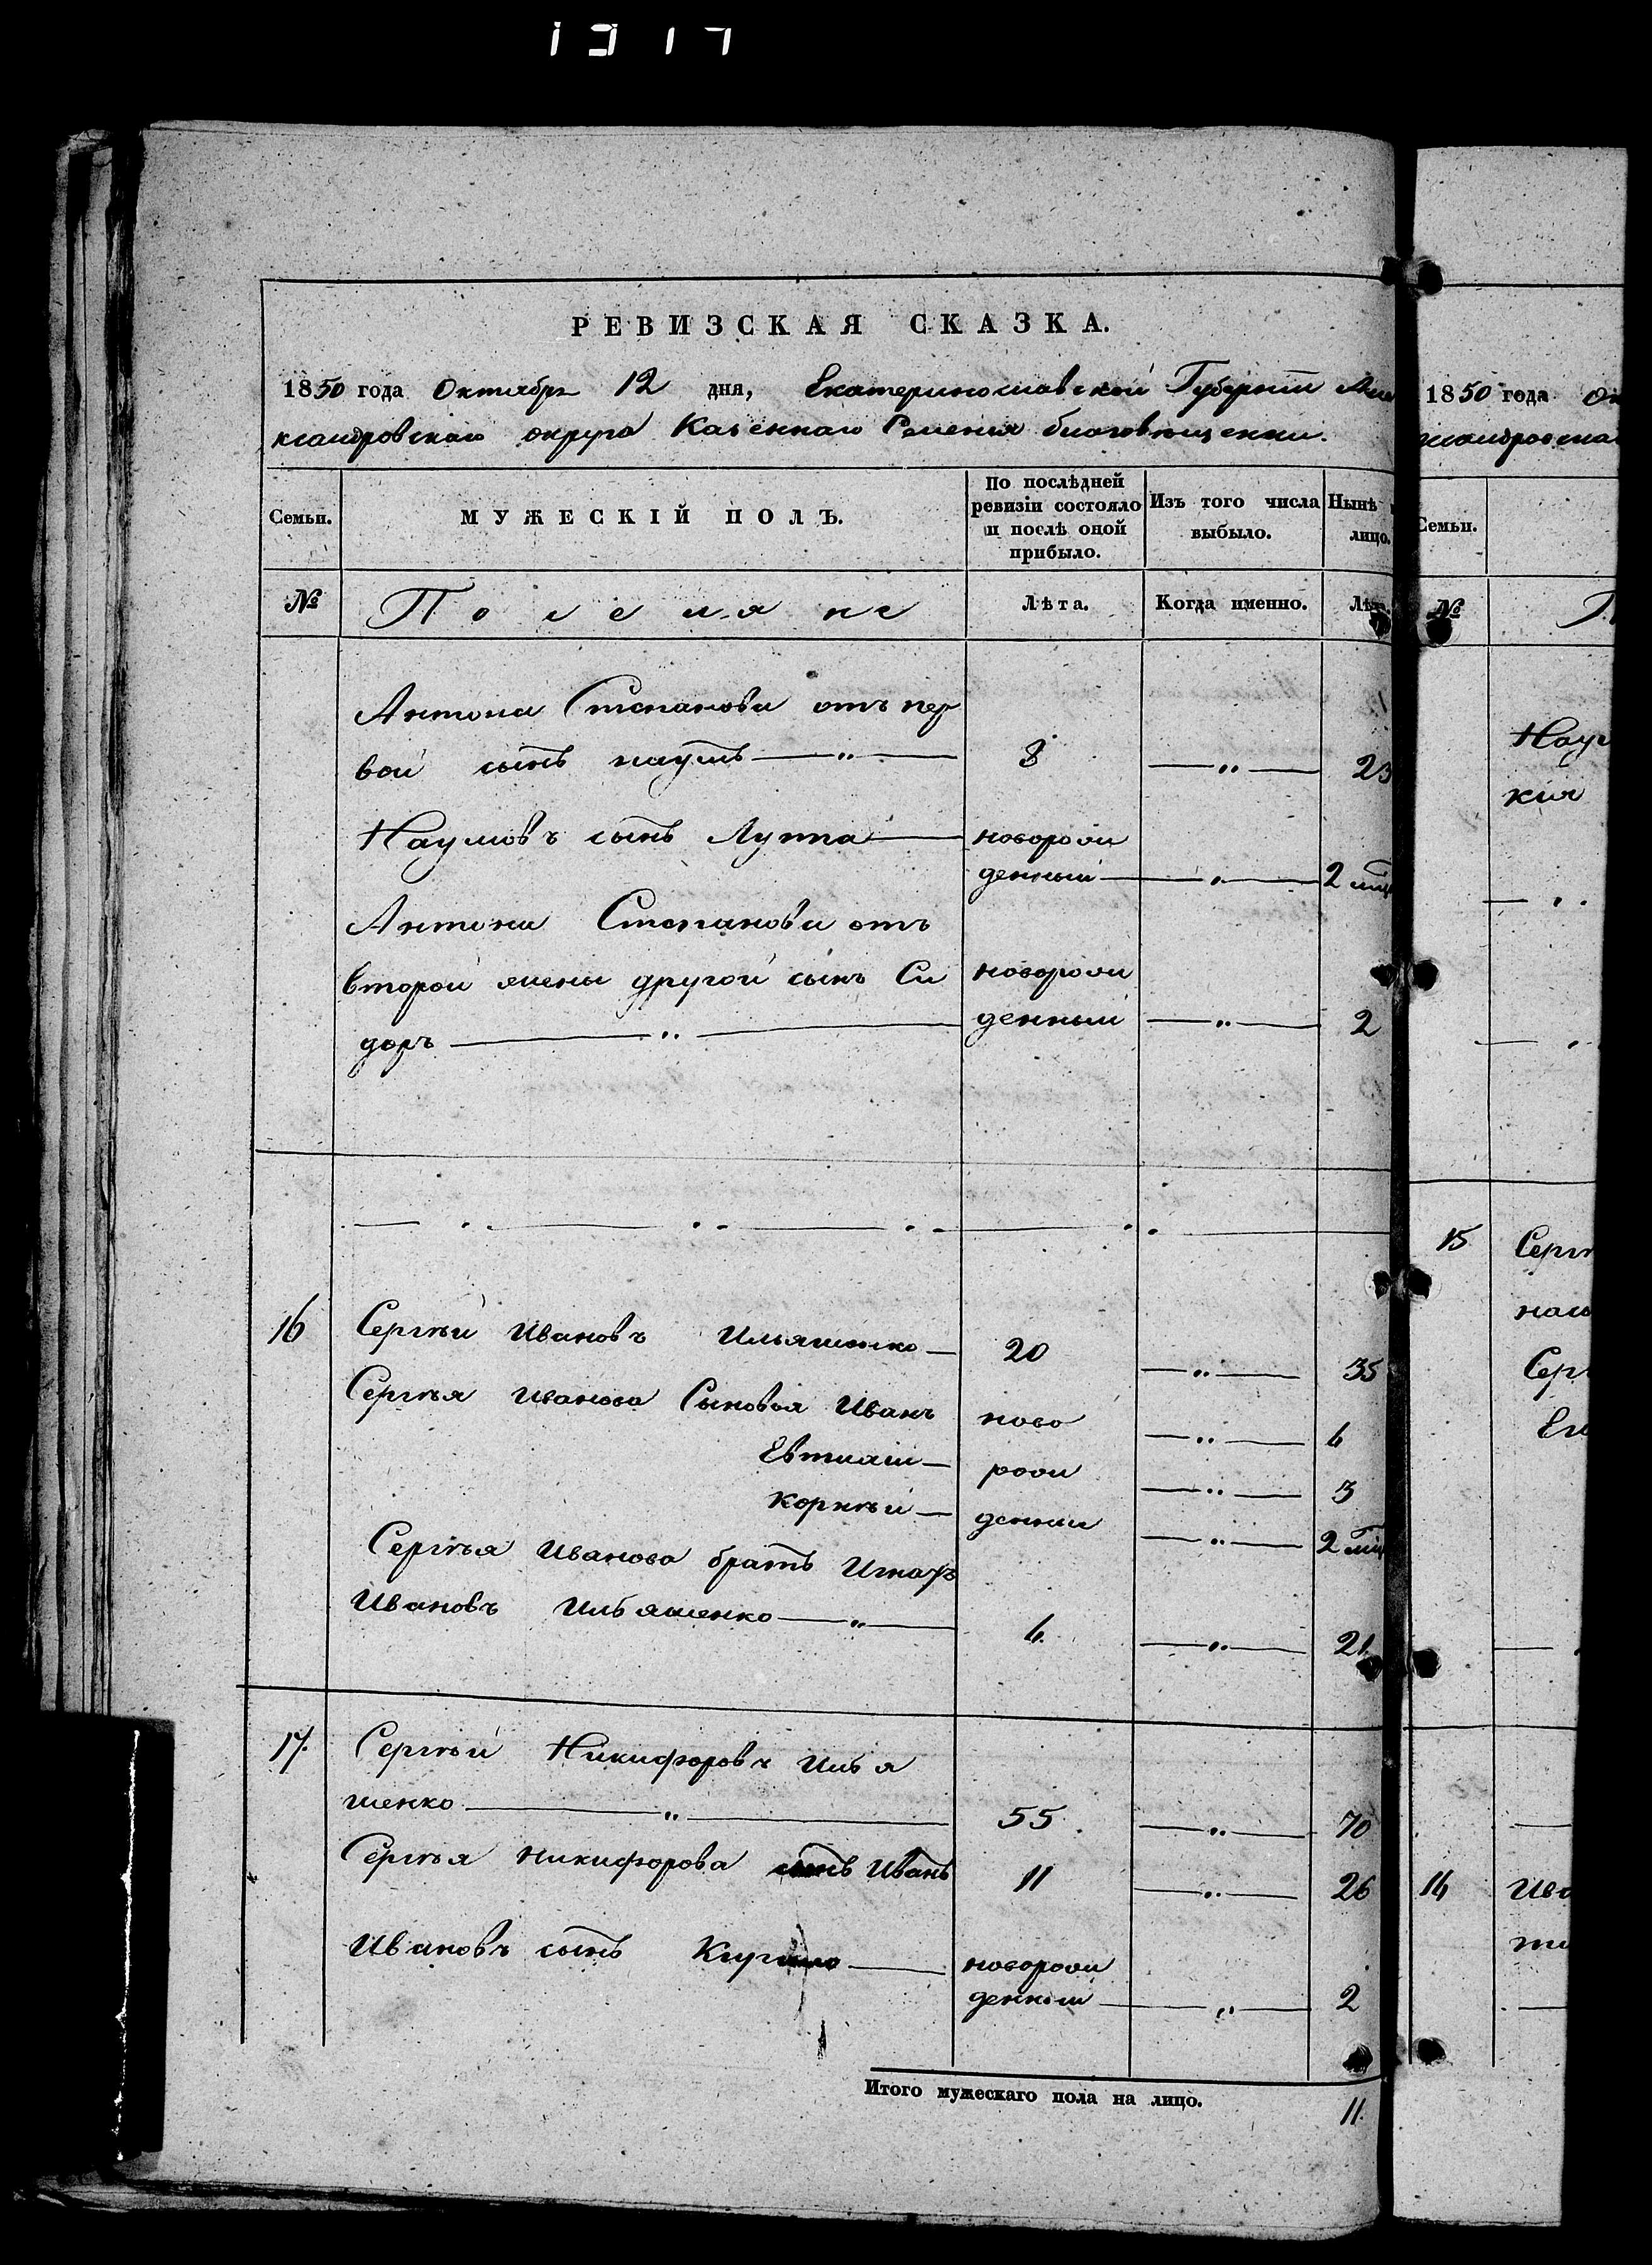 РЕВИЗСКАЯ СКАЗКА.
1850 года Октября 12 дня, Екатеринославской Губерніи Але
ксандровскаго округа Казеннаго Селенія благовѣщенки.
Семьи.
МУЖЕСКІЙ ПОЛЪ.
По послѣдней ревизіи состояло и послѣ оной прибыло.
Изъ того числа выбыло.
Нынѣ
лицо.
№ Поселяне Лѣта. Когда именно. Лѣта.
Антона Степанова отъ пер
вой сынъ наумъ 8 23
Наумовъ сынъ Лупа новорож
денный 2 мѣс
Антона Степанова отъ
второй жены другой сынъ Си новорож
доръ денный 2
16 Сергѣй Ивановъ Ильяшенко 20 35
Сергѣя Иванова Сыновья Иванъ ново 6
Евтихій рож 3
Корнѣй денныи 2 мѣс
Сергѣя Иванова братъ Игнатъ
Ивановъ Ильяшенко 6 21
17. Сергѣй Никифоровъ Илья
шенко 55 70
Сергѣя Никифорова сынъ Иванъ 11 26
Ивановъ сынъ новорож
денный 2
Итого мужескаго пола на лицо.
11.
1850 года Ок
ксандровска
Семьи.
№ П
Наум
кія
15 Серг
наго
Серг
Ег
14 Ива